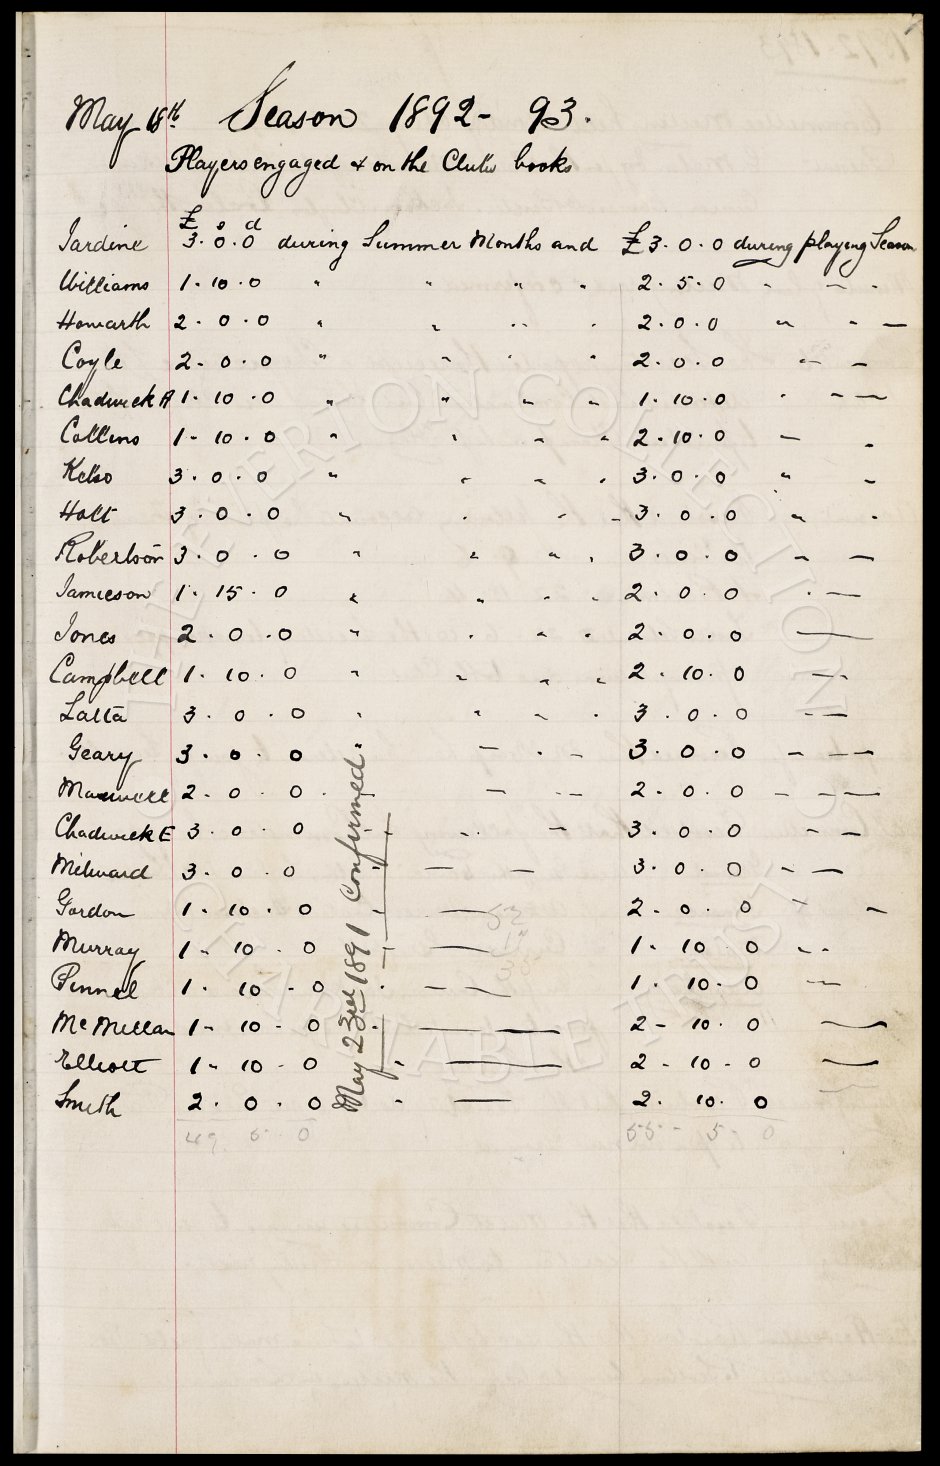 May 18th Season 1892-93.
Players engaged & on the Clubs books
£ s d
Jardine 3.0.0 during Summer Months and £3.0.0 during playing Season
Williams 1.10.0 " " " " 2.5.0 " - -
Howarth 2.0.0 " " " " 2.0.0 " - -
Coyle 2.0.0 " " " " 2.0.0 - -
Chadwick A 1.10.0 " " " " 1.10.0 - - -
Collins 1.10.0 " " " " 2.10.0 - -
Kelso 3.0.0 " " " " 3.0.0 " -
Holt 3.0.0 " " " - 3.0.0 " -
Robertson 3.0.0 " " " " 3.0.0 - -
Jamieson 1.15.0 " " " " 2.0.0 - -
Jones 2.0.0 " " " " 2.0.0 —
Campbell 1.10.0 " " " " 2.10.0 - -
Latta 3.0.0 " " " " 3.0.0 - -
Geary 3.0.0 " - - - 3.0.0 - - -
Maxwell 2.0.0 - - - 2.0.0 - - -
Chadwick E 3.0.0 - - - 3.0.0 - -
Milward 3.0.0 - - - 3.0.0 - -
Gordon 1.10.0 - — 2.0.0 - -
Murray 1.10.0 - — 1.10.0 - -
Pinnel 1.10.0 - - — 1.10.0 - -
McMillan 1-10-0 - — — 2-10.0 —
Elliott 1-10-0 - — 2-10-0 —
Smith 2.0.0 - — 2.10.0
49. 5. 0 55-5.0
May 23rd 1891 Confirmed
EVERTON COLLECTION
CHARITABLE TRUST